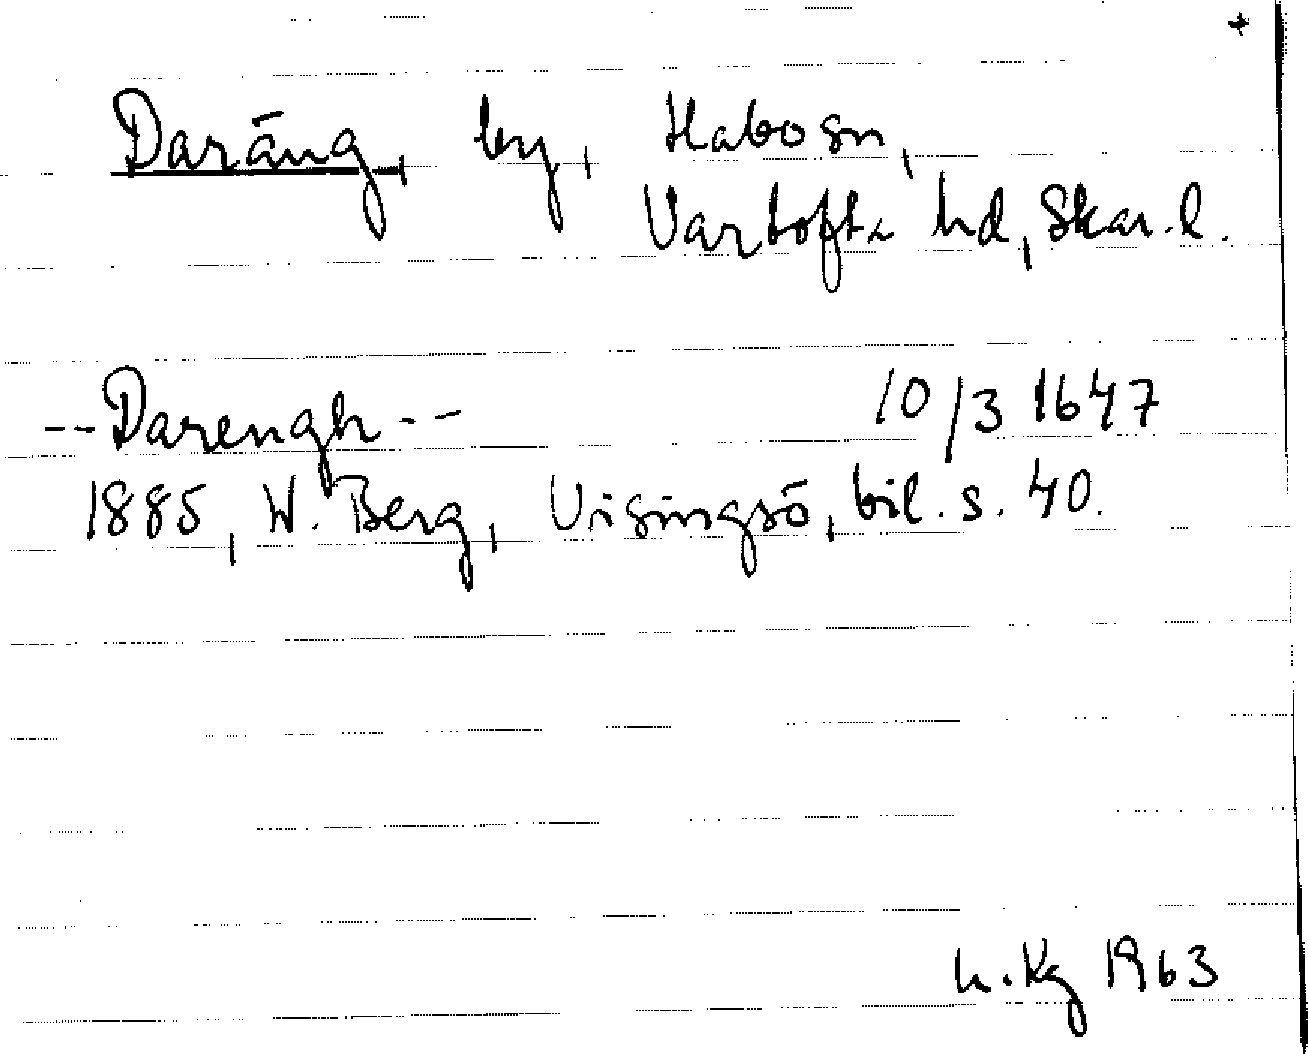 +
Daräng, by, Habo sn,
Vartofta hd, Skar. l.
--Darengh-- 10/3 1647
1885, W. Berg, Visingsö, bil. s. 40.
h. Kg 1963